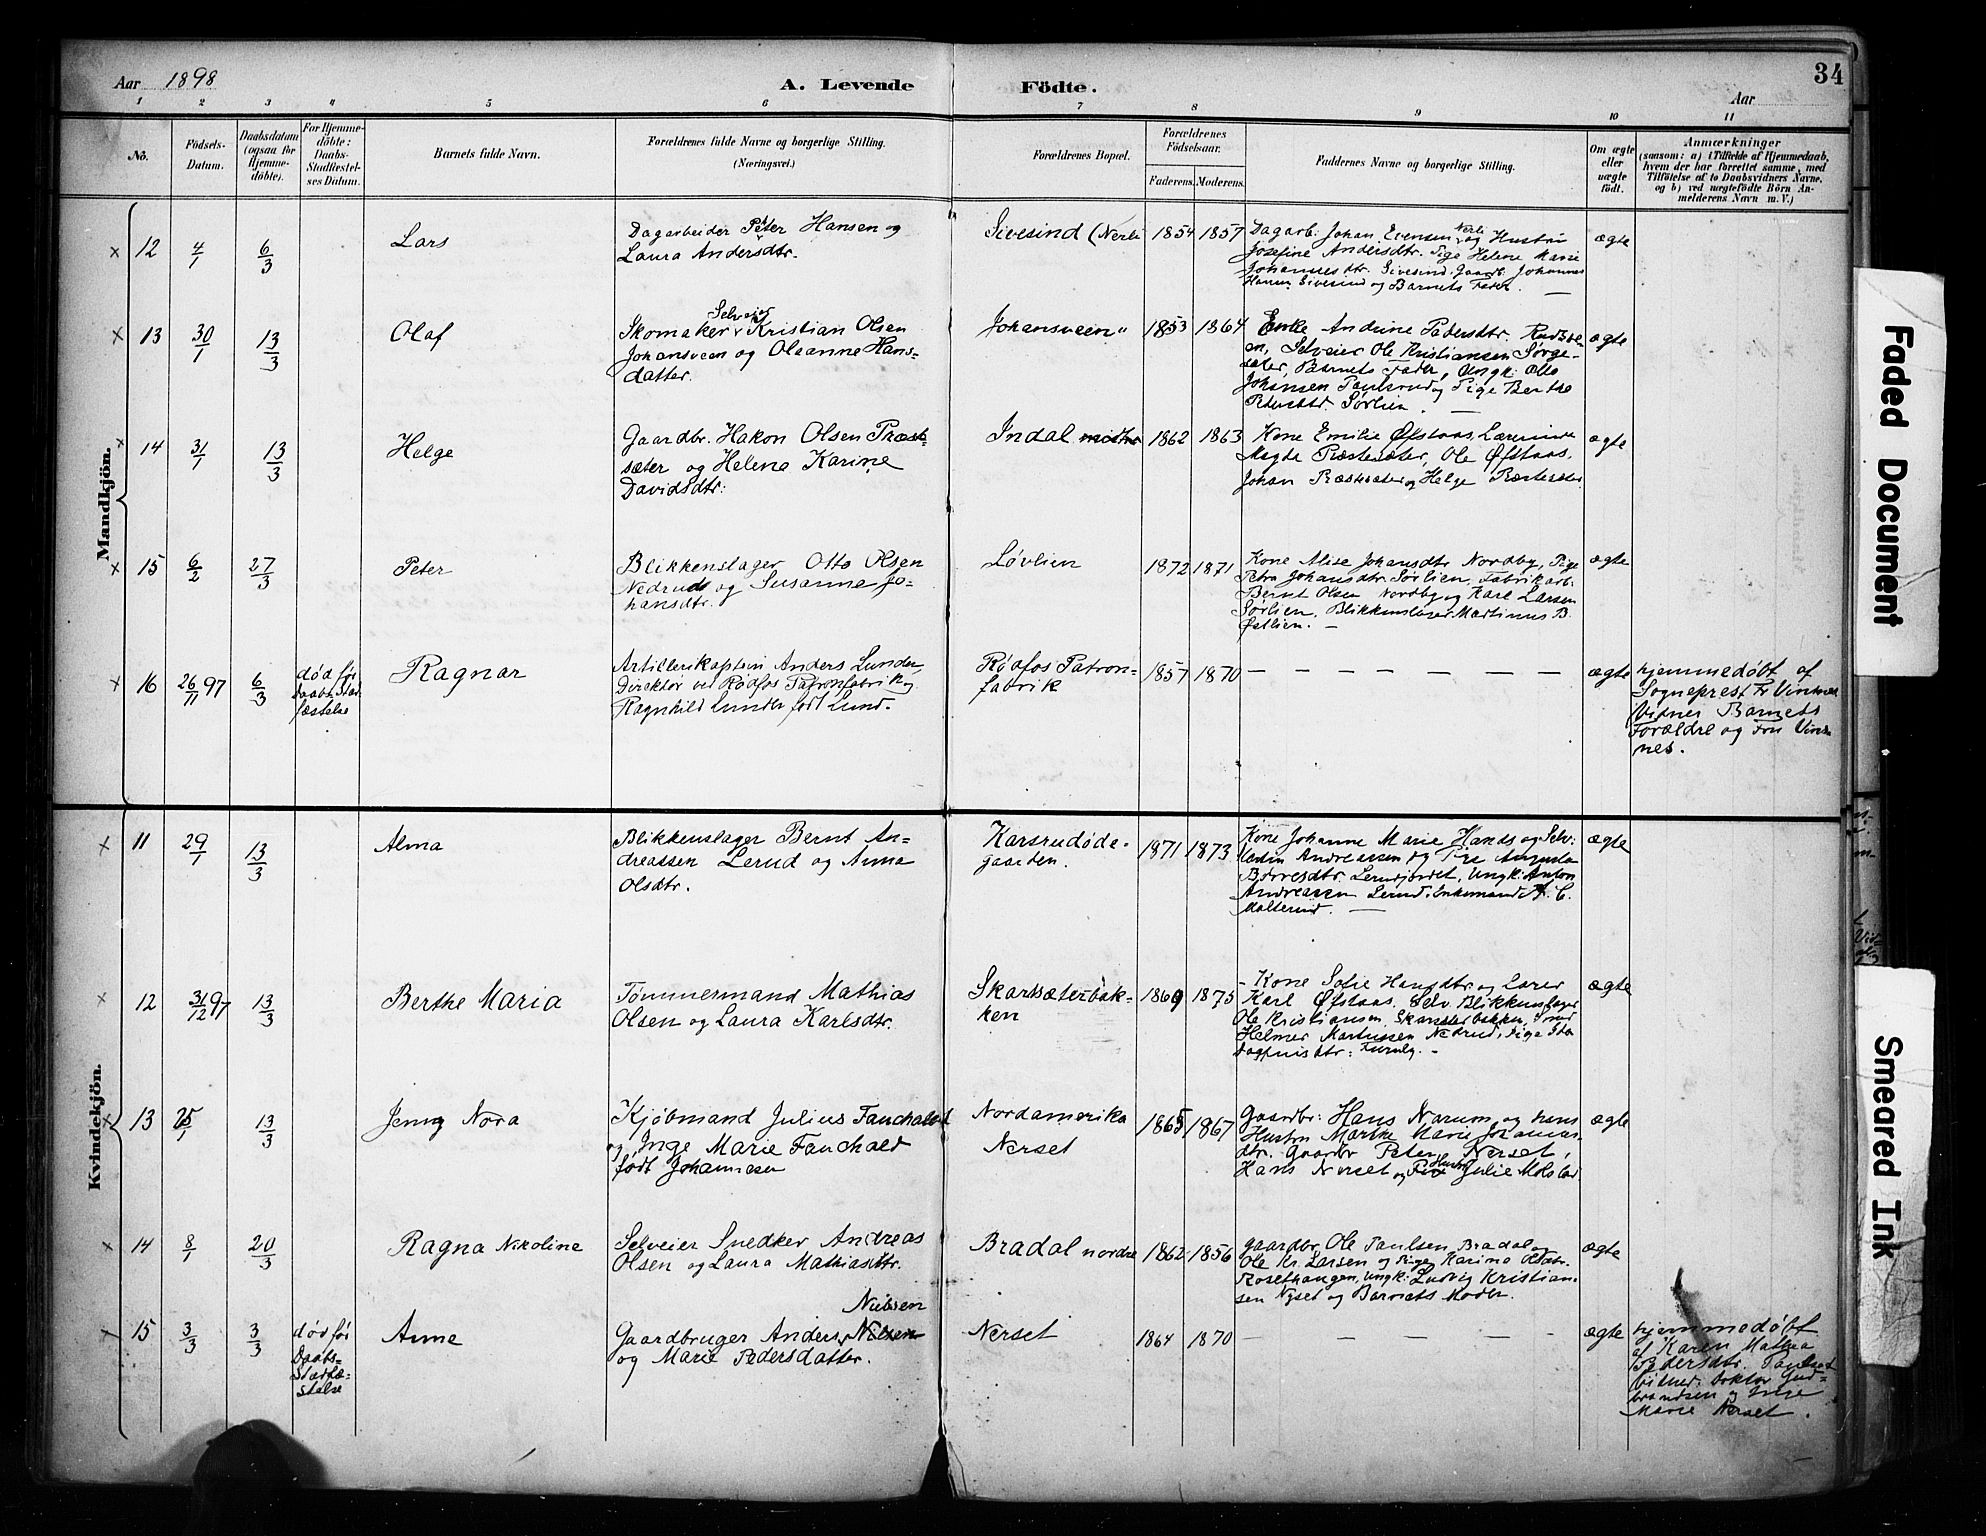 34
Aar 1898
A. Levende Födte.
Aar
1 2 3 4 5 6 7 8 9 10 11
No.
Födsels-
Datum.
Daabsdatum
(ogsaa for
Hjemme-
döbte).
For Hjemme-
döbte:
Daabs-
Stadfæstel-
ses Datum.
Barnets fulde Navn.
Forældrenes fulde Navne og borgerlige Stilling.
(Næringsvei.)
Forældrenes Bopæl.
Forældrenes
Födselsaar.
Faderens. Moderens.
Faddernes Navne og borgerlige Stilling.
Om ægte
eller
uægte
födt.
Anmærkninger
(saasom: a) i Tilfælde af Hjemmedaab,
hvem der har forrettet samme, med
Tilföielse af to Daabsvidners Navne,
og b) ved uægtefödte Börn An-
melderens Navn m. V.)
Mandkjön.
× 12 4/1 6/3
Lars
Dagarbeider Peter Hansen og
Laura Andersdtr.
Sivesind (Nerli
1854 1857
Dagarb. Johan Evensen Nerli og Hustru
Josefine Andersdtr. Pige Helene Marie
Johannesdtr. Sivesind. Gaardb. Johannes
Hansen Sivesind og Barnets Fader. —
ægte
× 13 30/1 13/3
Olaf
Selveier
Skomaker Kristian Olsen
Johansveen og Oleanne Hans-
datter.
Johansveen
1853 1864
Enke Andrine Pedersdtr.
en, Selveier Ole Kristiansen Sørge-
sæter, Barnets Fader, Ungk: Otto
Johansen Paulsrud og Pige Berthe
Pedersdtr. Sørlien. —
ægte
× 14 31/1 13/3
Helge
Gaardbr. Hakon Olsen Præst-
sæter og Helena Karine
Davidsdtr:
Indal
1862 1863
Kone Emilie Øfstaas, Lærerinde
Magde Præstesæter, Ole Øfstaas,
Johan Præstesæter og Helge Præstesæter
ægte
× 15 6/2 27/3
Peter
Blikkenslager Otto Olsen
Nedrud og Susanne Jo-
hansdtr.
Løvlien
1872 1871
Kone Alise Johansdtr Nordby, Pige
Petra Johansdtr. Sørlien, Fabrikarb.
Bernt Olsen Nordby og Karl Larsen
Sørlien, Blikkenslager Martinus B.
Østlien. —
ægte
× 16 26/11 97 6/3
død før
Daabs Stad-
fæstelse
Ragnar
Artillerikaptein Anders Lunder,
Direktør ved Rødfos Patronfabrik og
Ragnhild Lunder født Lund.
Rødfos Patron-
fabrik
1857 1870
— — — — — —
ægte
hjemmedøbt af
Sogneprest Fr Vinsnes
Vidner Barnets
Forældre og Fru Vins-
nes.
Kvindekjön.
× 11 29/1 13/3
Alma
Blikkenslager Bernt An-
dreassen Lerud og Anna
Olsdtr.
Karsrudøde-
gaarden.
1871 1873
Kone Johanne Marie Hands og Selv:
Martin Andreassen og Pige Augusta
Lerudjordet, Ungk: Anton
Andreassen Lerud. Enkemand A. C.
Malterud. —
ægte
× 12 31/12 97 13/3
Berthe Maria
Tømmermand Mathias
Olsen og Laura Karlsdtr.
Skartsæterbak-
ken
1869 1875
- Kone Sofie Hansdtr og Lærer
Karl Øfstaas, Selv. Blikkenslager
Ole Kristiansen, Skartsæterbakken,
Helmer Martinssen Nedrud, Pige
Furuly. -
ægte
× 13 25/1 13/3
Jenny Nora
Kjøbmand Julius Fauchald
og Inge Marie Fauchald
født Johannesen
Nordamerika
Nerset
1865 1867
Gaardbr: Hans Narum og hans
Hustru Marthe Marie Johannes-
dtr. Gaardbr Peter Nerset,
Hans Nerset og Julie
ægte
× 14 8/1 20/3
Ragna Nikoline
Selveier Snedker Andreas
Olsen og Laura Mathiasdtr.
Bradal nordre
1862 1856
Gaardbr. Ole Paulsen Bradal og
Ole Kr. Larsen og Pige Karina Olsdtr.
Rosethaugen, Ungk: Ludvig Kristian-
sen Nyset og Barnets Moder.
ægte
× 15 3/3 3/3
død før
Daabs-
Stadfæ-
stelse
Anne
Nielsen
Gaardbruger Anders Nilsen
og Marie Pedersdatter.
Nerset
1864 1870
— — — — — —
ægte
hjemmedøbt
af Karen Mathea
Pedersdtr.
Vidner: Doktor Gud-
brandsen og Inge
Marie Nerset.
Faded Document
Smeared Ink